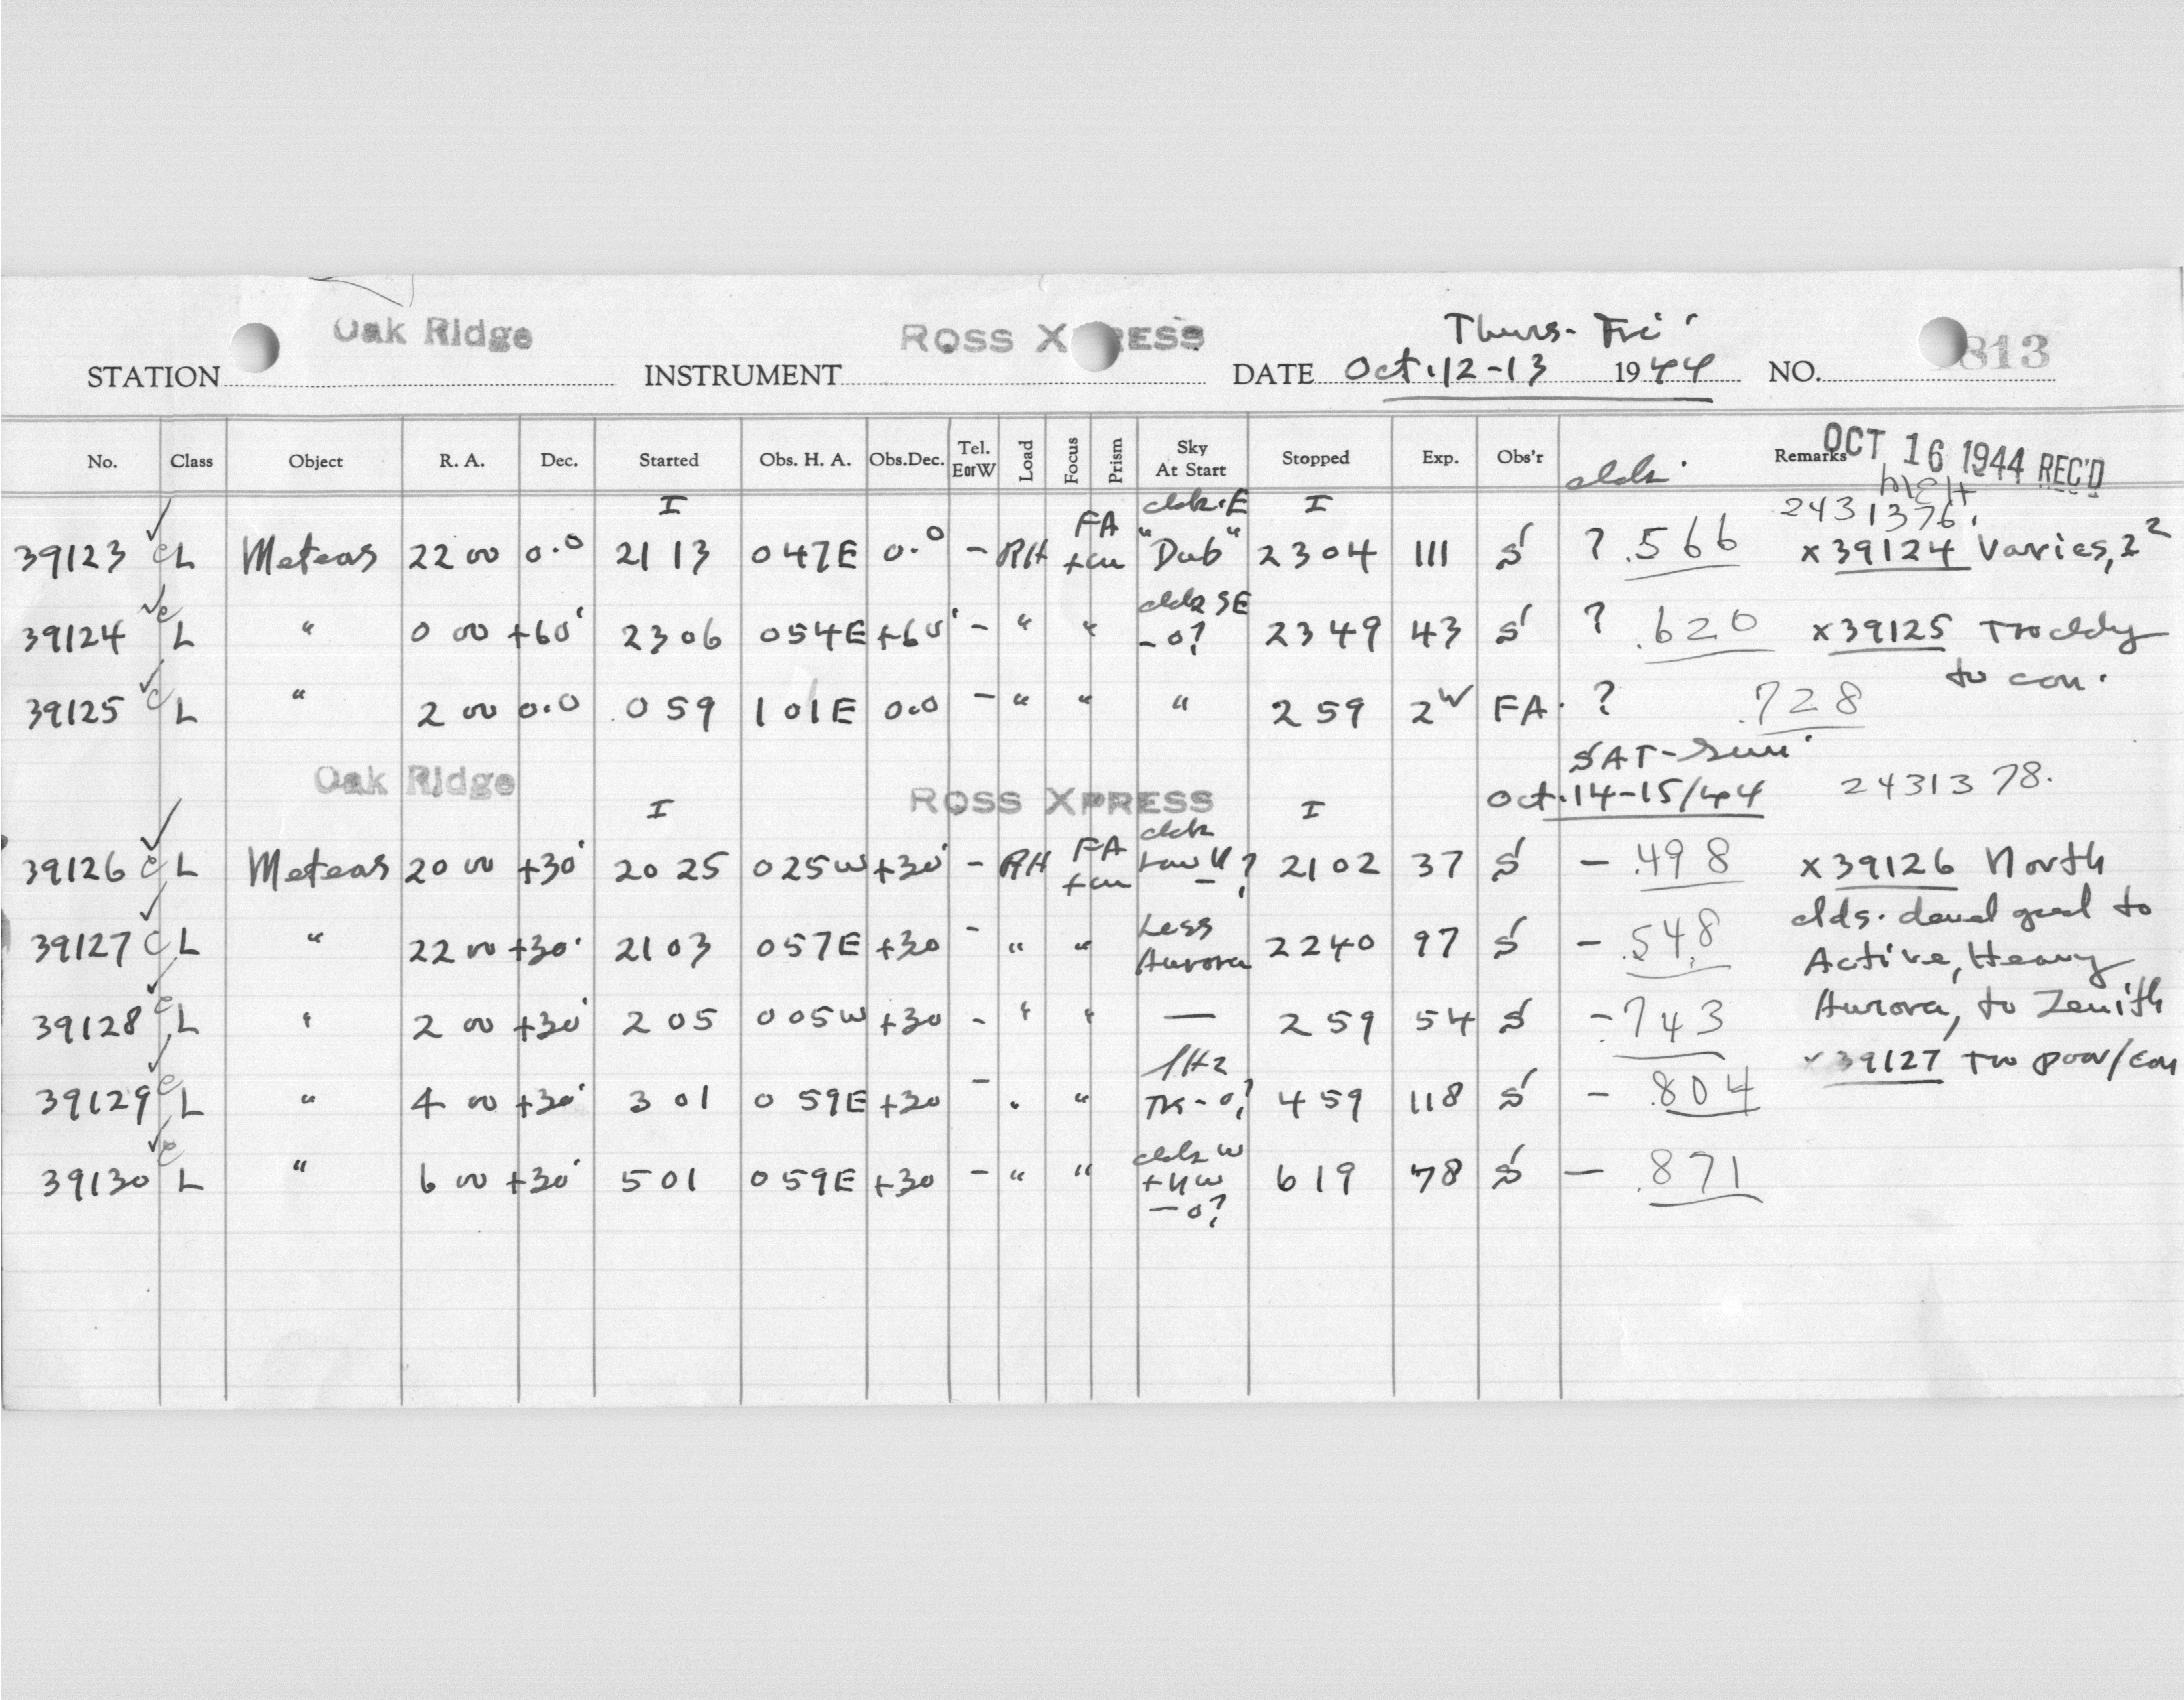 Oak Ridge ROSS XPRESS Thurs-Fri
STATION INSTRUMENT DATE Oct. 12-13 1944 NO. 813
No. Class Object R. A. Dec. Started Obs. H. A. Obs.Dec. Tel. EorW Load Focus Prism Sky At Start Stopped Exp. Obs'r Remarks
OCT 16 1944 REC'D
I I 2431376.
39123 c L Meteors 22 00 0.0 21 13 0 47E 0.0 - RH FA "Dub" 2304 111 S ? .566 x39124 Varies, 2
39124 c L " 0 00 +60 2306 054E +60 - " " -0? 2349 43 S ? .620 x39125 Tr
39125 c L " 2 00 0.0 0 59 1 01E 0.0 - " " " 2 59 2 FA. ? .728
to con.
SAT-Sun.
Oak Ridge ROSS XPRESS Oct. 14-15/44 2431378.
I I
39126 c L Meteors 20 00 +30 20 25 0 25W +30 - RH FA Low N? 2102 37 S - .498 x39126 North
39127 c L " 22 00 +30 2103 057E +30 - " " Less Aurora 2240 97 S - .548 clds. good to
Active, Heavy
39128 c L " 2 00 +30 2 05 0 05W +30 - " " — 2 59 54 S - .743 Aurora, to Zenith
x39127 Tr poor/con
39129 c L " 4 00 +30 3 01 0 59E +30 - " " -0? 4 59 118 S - .804
39130 c L " 6 00 +30 5 01 0 59E +30 - " " W +NW -0? 6 19 78 S - .871